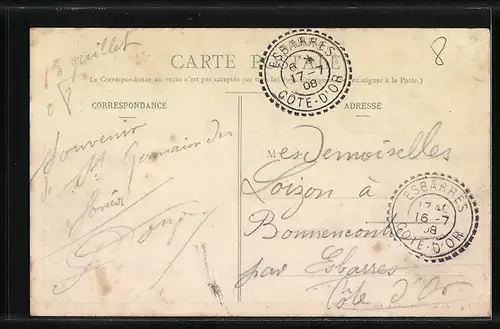 15 juillet
08
8
CARTE POSTALE
(La Correspondance au recto n'est pas acceptée par
CORRESPONDANCE
ADRESSE
ESBARRES
17-7
08
COTE-D'OR
Souvenir
de St Germain du
M esdemoiselles
Loizon à
Bonnencontre
par Esbarres
Côte d'Or
ESBARRES
16-7
08
COTE-D'OR